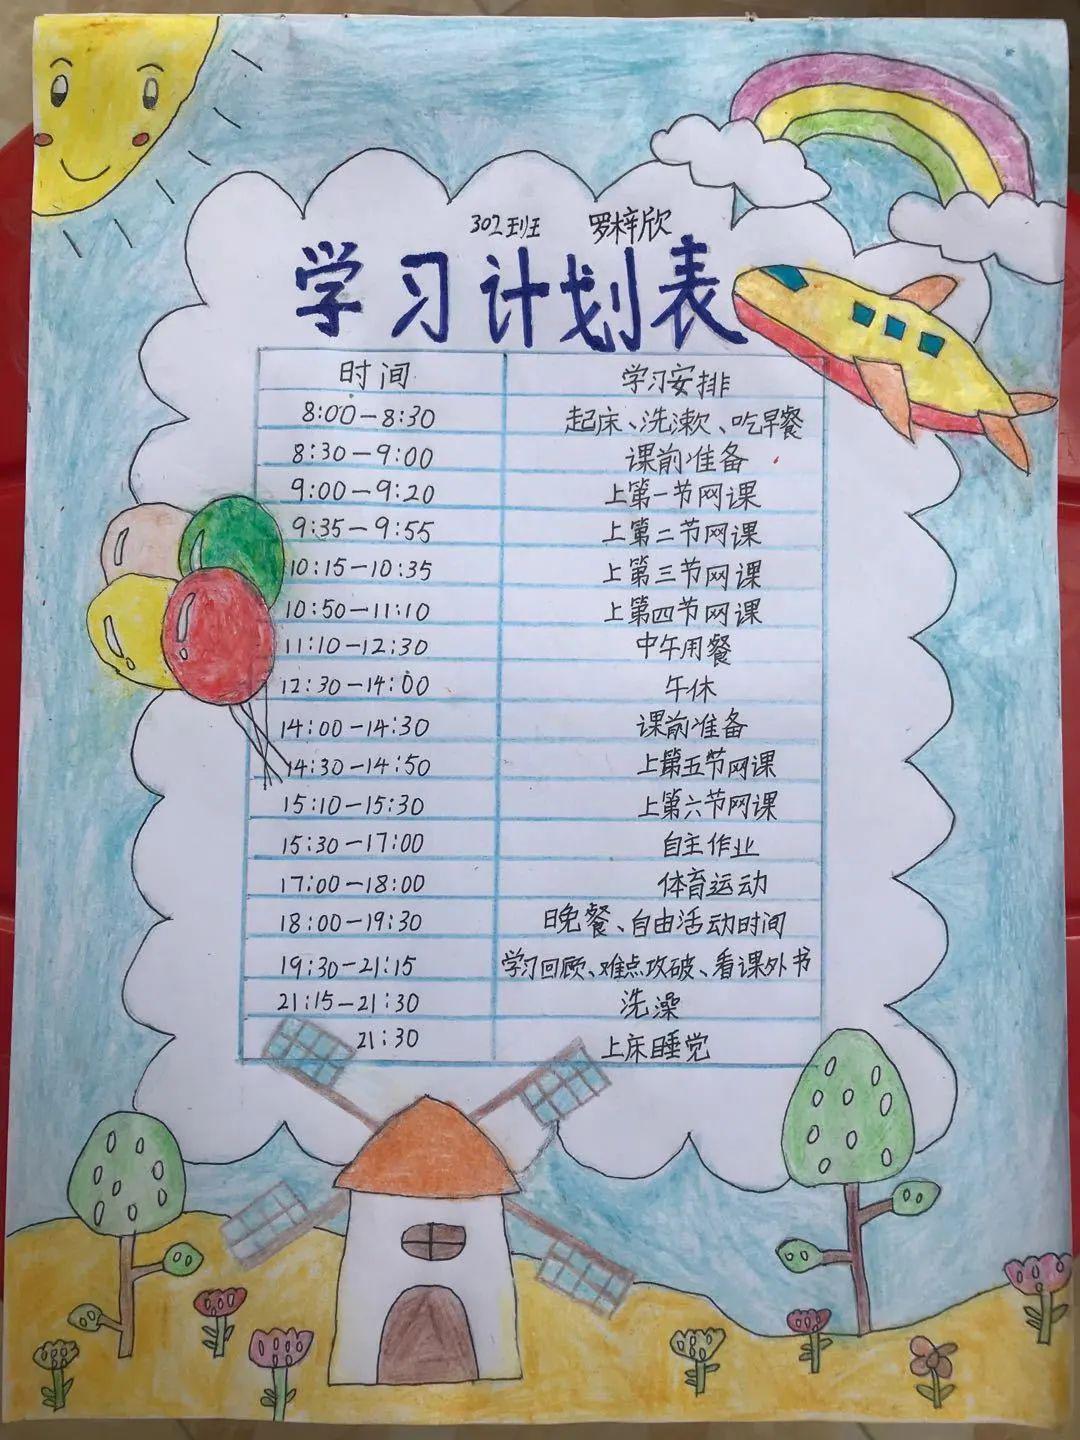 302班 罗梓欣
学习计划表
时间 学习安排
8:00-8:30 起床、洗漱、吃早餐
8:30-9:00 课前准备
9:00-9:20 上第一节网课
9:35-9:55 上第二节网课
10:15-10:35 上第三节网课
10:50-11:10 上第四节网课
11:10-12:30 中午用餐
12:30-14:00 午休
14:00-14:30 课前准备
14:30-14:50 上第五节网课
15:10-15:30 上第六节网课
15:30-17:00 自主作业
17:00-18:00 体育运动
18:00-19:30 晚餐、自由活动时间
19:30-21:15 学习回顾、难点攻破、看课外书
21:15-21:30 洗澡
21:30 上床睡觉